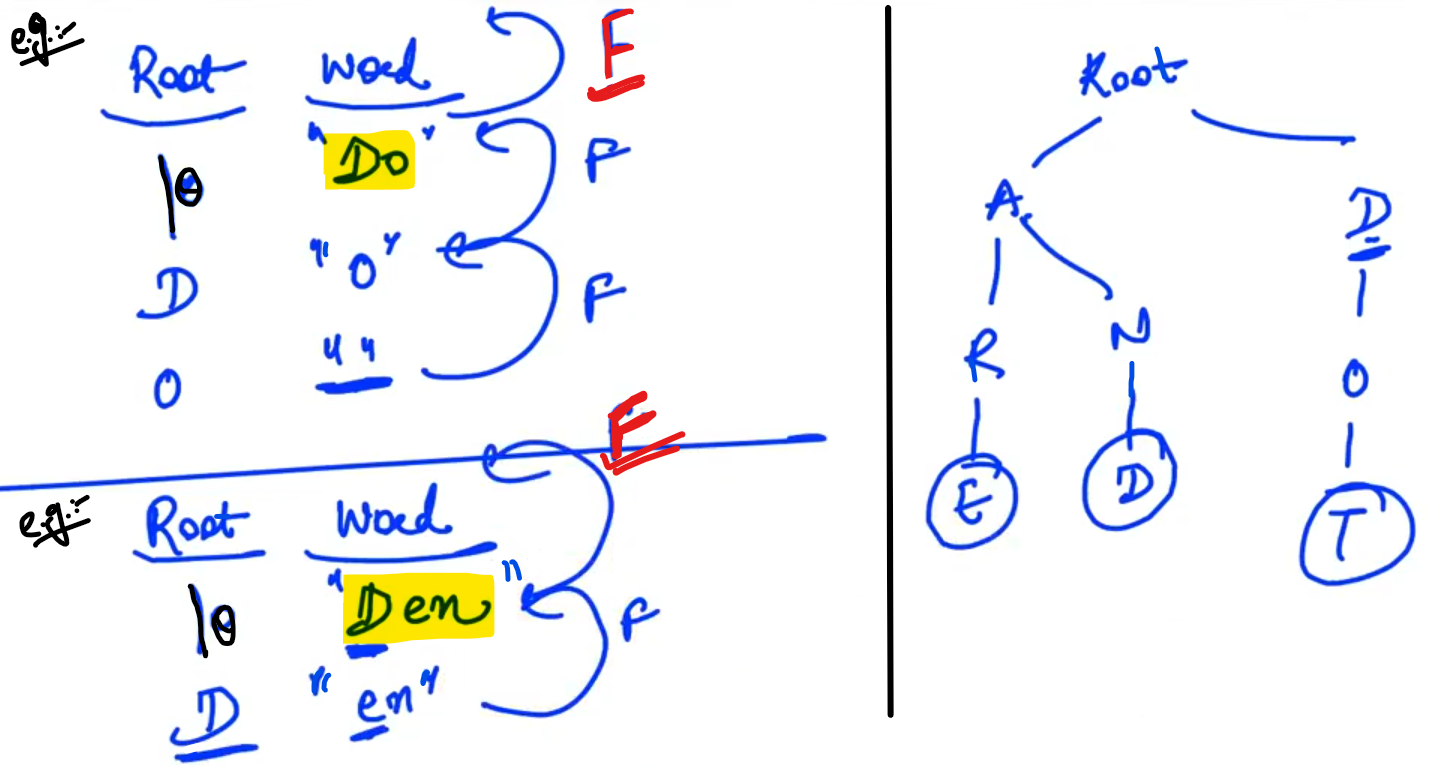 e.g:-
Root Word F
\0 "Do" F
D "O" F
O ""
F
e.g:-
Root Word
\0 "Den" F
D "en"
Root
A D
R N O
E D T